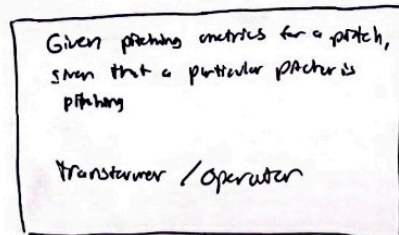 Given pitching metrics for a pitch,
given that a particular pitcher is
pitching
transformer / operator